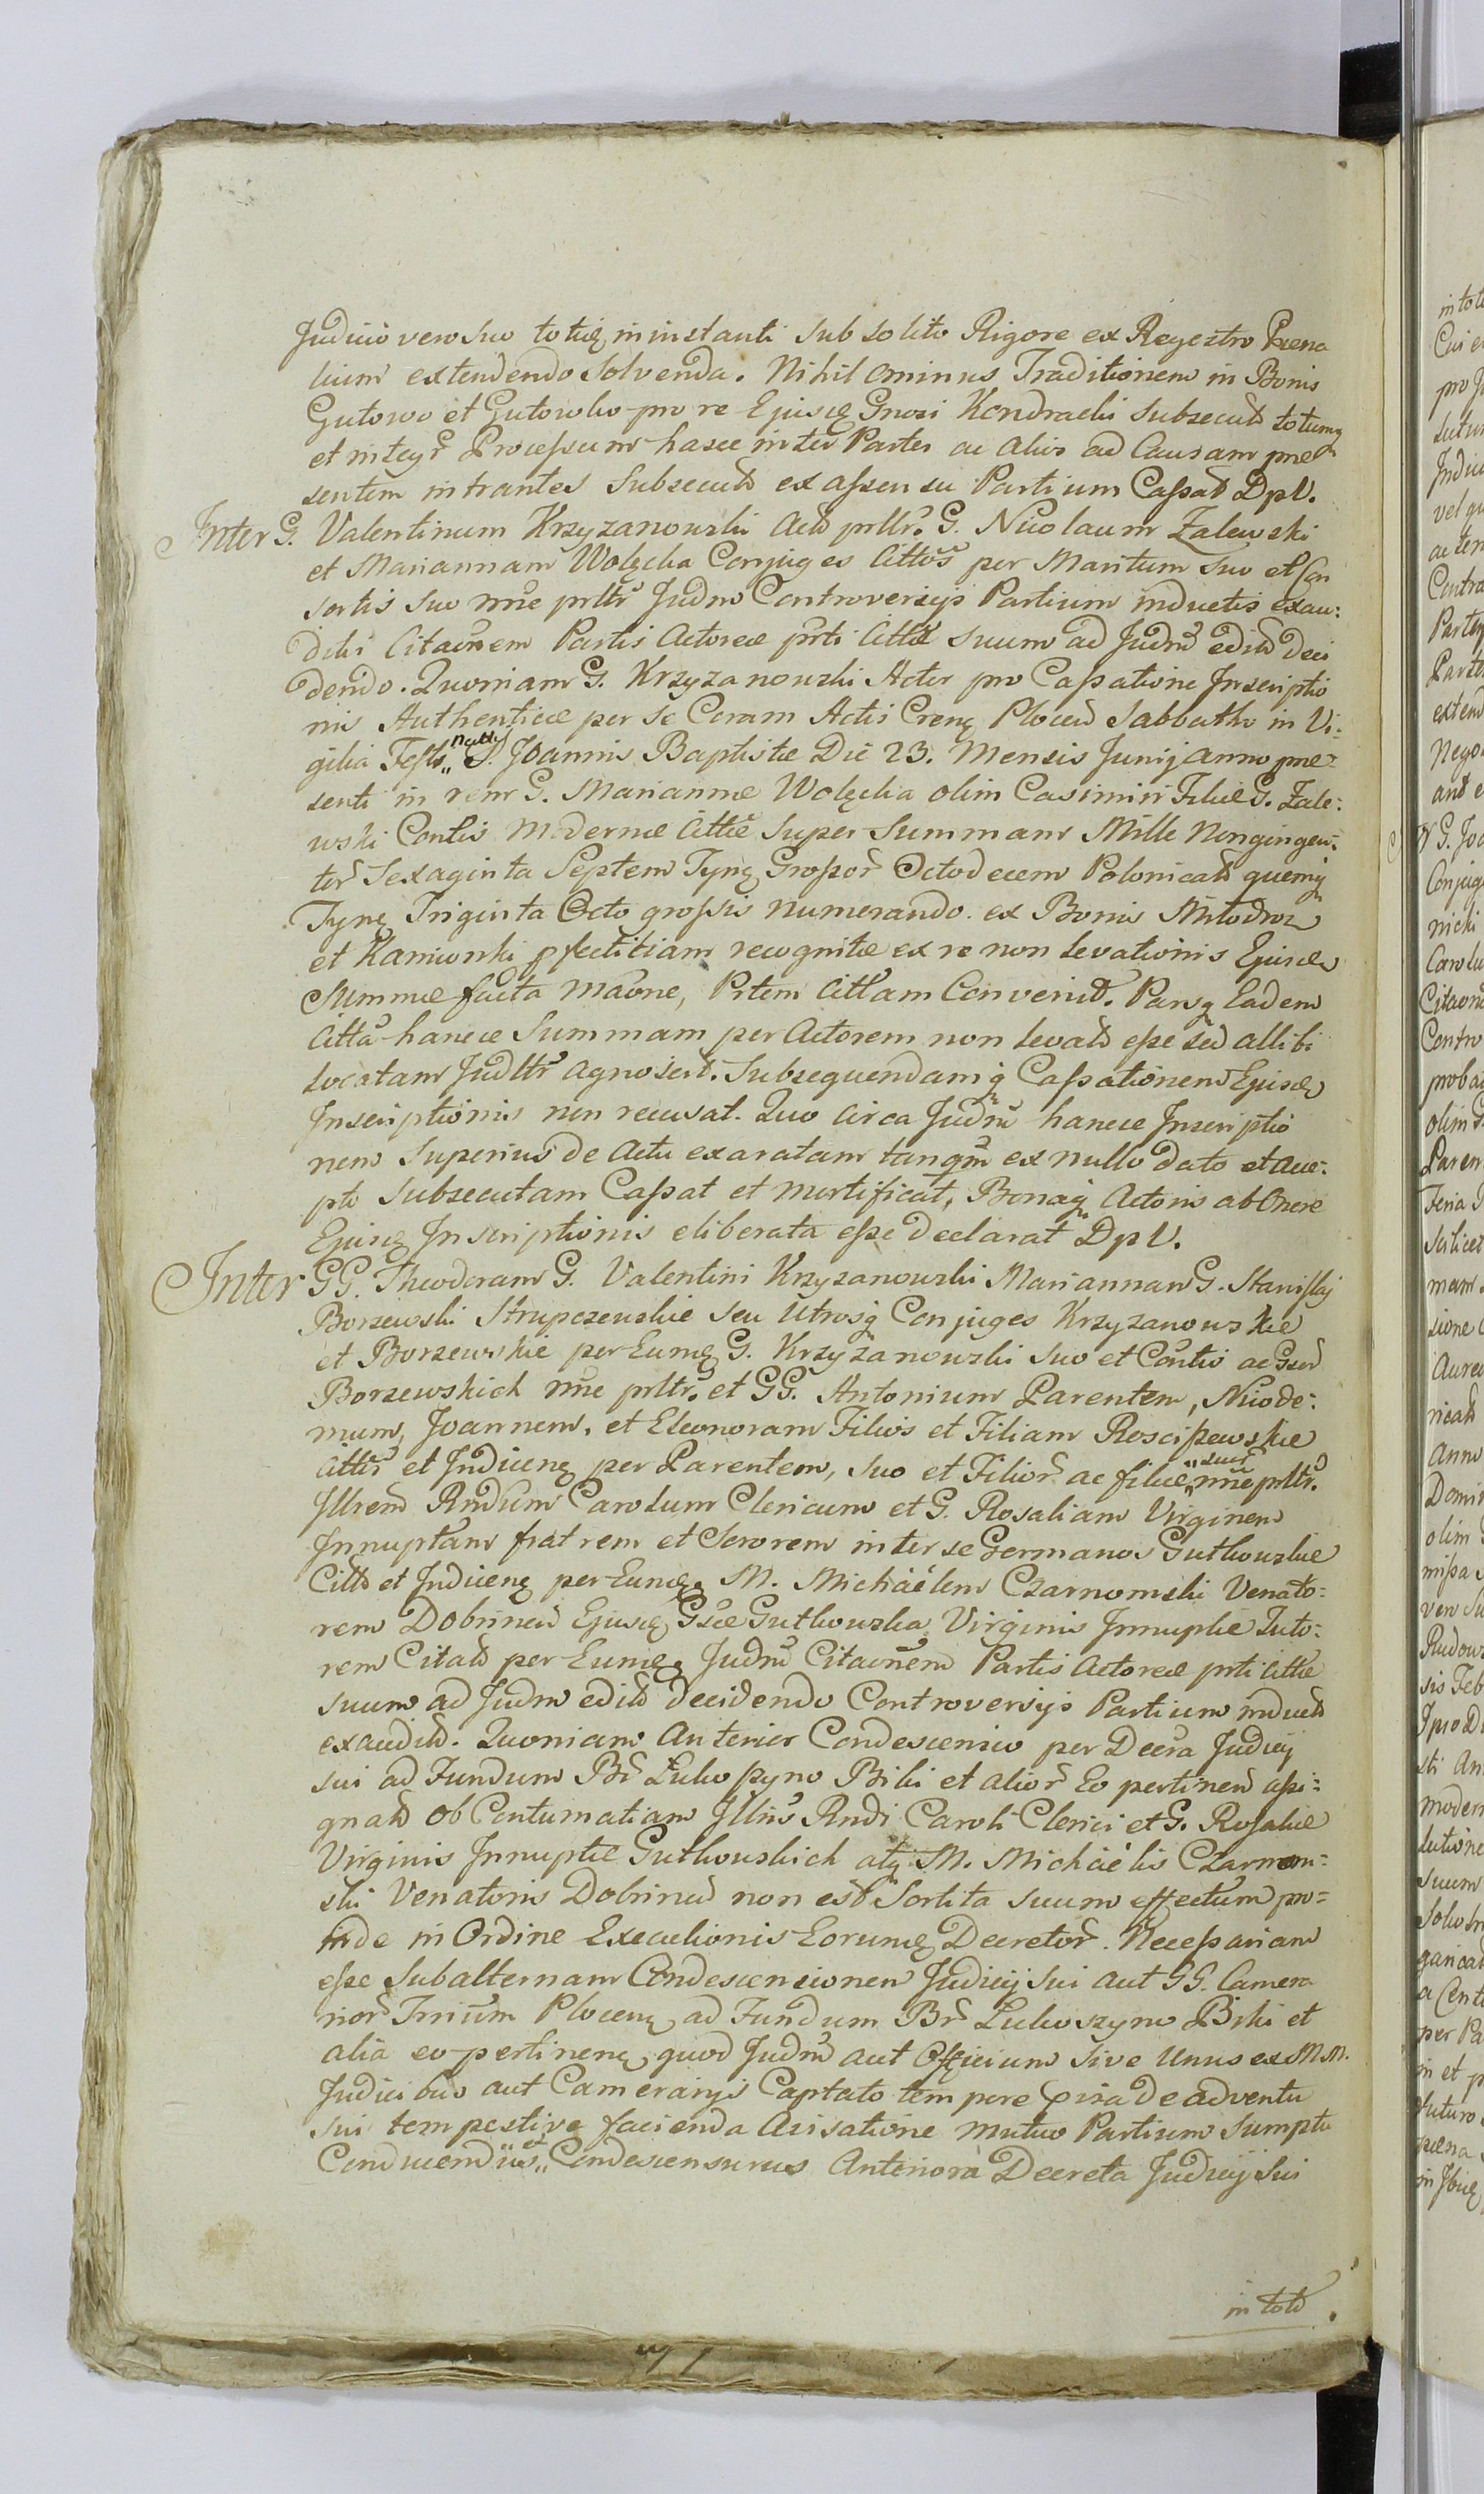 Judicio vero suo totię in instanti sub solito Rigore ex Regestro Paena
lium extendendo Solvenda. Nihil Ominus Traditionem in Bonis
Gutowo et Gutowko pro re Ejusdę Gnosi Kendracki Subsecutã totumq
et integr̃ Processum hasce inter Partes ac alios ad Causam prae
sentem intrantes Subsecutã ex assensu Partium Cassat DplV.
Inter G. Valentinum Krzyzanowski Actõ prltr̃. G. Nicolaum Zalewski
et Mariannam Wolęcka Conjuges Cittos per Maritum suo et Con
sortis suo nne prltr̃ Judm̃ Controversijs Partium inductis exau:
ditis Citaõnem Partis Actoreae prti Cittae suum ad Judm̃ editã deci
dendo. Quoniam G. Krzyzanowski Actor pro Cassatione Inscriptio
nis Authenticae per se Coram Actis Crenę Plocen̄ Sabbatho in Vi:
gilia Festi „Natty S. Joannis Baptistae Die 23. Mensis Junij Anno prae:
senti in rem G. Mariannae Wolęcka olim Casimiri Filiae G. Zale:
wski Contis Modernae Cittae Super Summam Mille Nongingen:
tor̃ Sexaginta Septem Tynę Grossor̃ Octodecem Polonicalã quemq
Tynę Triginta Octo grossis numerando. ex Bonis Młodroz
et Kaniwski pfectitiam recognitae ex re non levationis Ejusdę
Summae facta Maõne, Prtem Cittam Convenit. Parsq Eadem
Citta hancce Summam per Actorem non levatã esse sed allibi
locatam Judltr̃ agnoscit. Subsequendamq Cassationem Ejusdę
Inscriptionis non recusat. Quo circa Judm̃ hancce Inscriptio
nem Superius de Actu exaratam tanqm̃ ex nullo dato et acce:
pto subsecutam Cassat et mortificat, Bonaq Actoris ab Onere
Ejusdę Inscriptionis eliberata esse declarat DplV.
Inter GG. Theodoram G. Valentini Krzyzanowski Mariannam G. Stanislaj
Borzewski Strupczewskie seu Utrosq Conjuges Krzyzanowskie
et Borzewskie per Eundę G. Krzyzanowski suo et Contis ac Gsor̃
Borzewskich nne prltr̃. et GG. Antonium Parentem, Nicode:
mum, Joannem, et Eleonoram Filios et Filiam Roscissewskie
Cittos et Indicenę per Parentem, suo et Filior̃ ac filiae „suor̃ nne prltr̃.
Illrem Rndum̃ Carolum Clericum et G. Rosaliam Virginem
Innuptam fratrem et Sororem inter se Germanos Gutkowskie
Cittõ et Indicenę per Eundę. M. Michaëlem Czarnomski Venato:
rem Dobrinen̄ Ejusdę Gsae Gutkowska Virginis Innuptae Tuto:
rem Citatã per Eundę. Judm̃ Citaõnem Partis Actoreae prti Cittae
suum ad Judm̃ editã decidendo Controversijs Partium inductã
exauditã. Quoniam Anterior Condescensio per Decra Judicij
sui ad Fundum Br̃ Lukoszyno Biki et alior̃ Eo pertinen̄ assi:
gnatã ob Contumatiam Illris Rndi Caroli Clerici et G. Rosaliae
Virginis Innuptae Gutkowskich atq M. Michaëlis Czarnom:
ski Venatoris Dobrinen̄ non est Sortita suum effectum pro:
inde in Ordine Executionis Eorundę Decretor̃. Necessariam
esse Subalternam Condescensionem Judicij sui aut GG. Camera
rior̃ Trrium̃ Plocenę ad Fundum Br̃ Lukoszyno Biki et
alia eo pertinenę quod Judm̃ aut Officium sive Unus ex MM.
Judicibus aut Camerarijs Captato tempore praevia de adventu
sui tempestive facienda Avisatione mutuo Partium Sumptu
Conducendus Condescensurus Anteriora Decreta Judicij Sui
in totõ